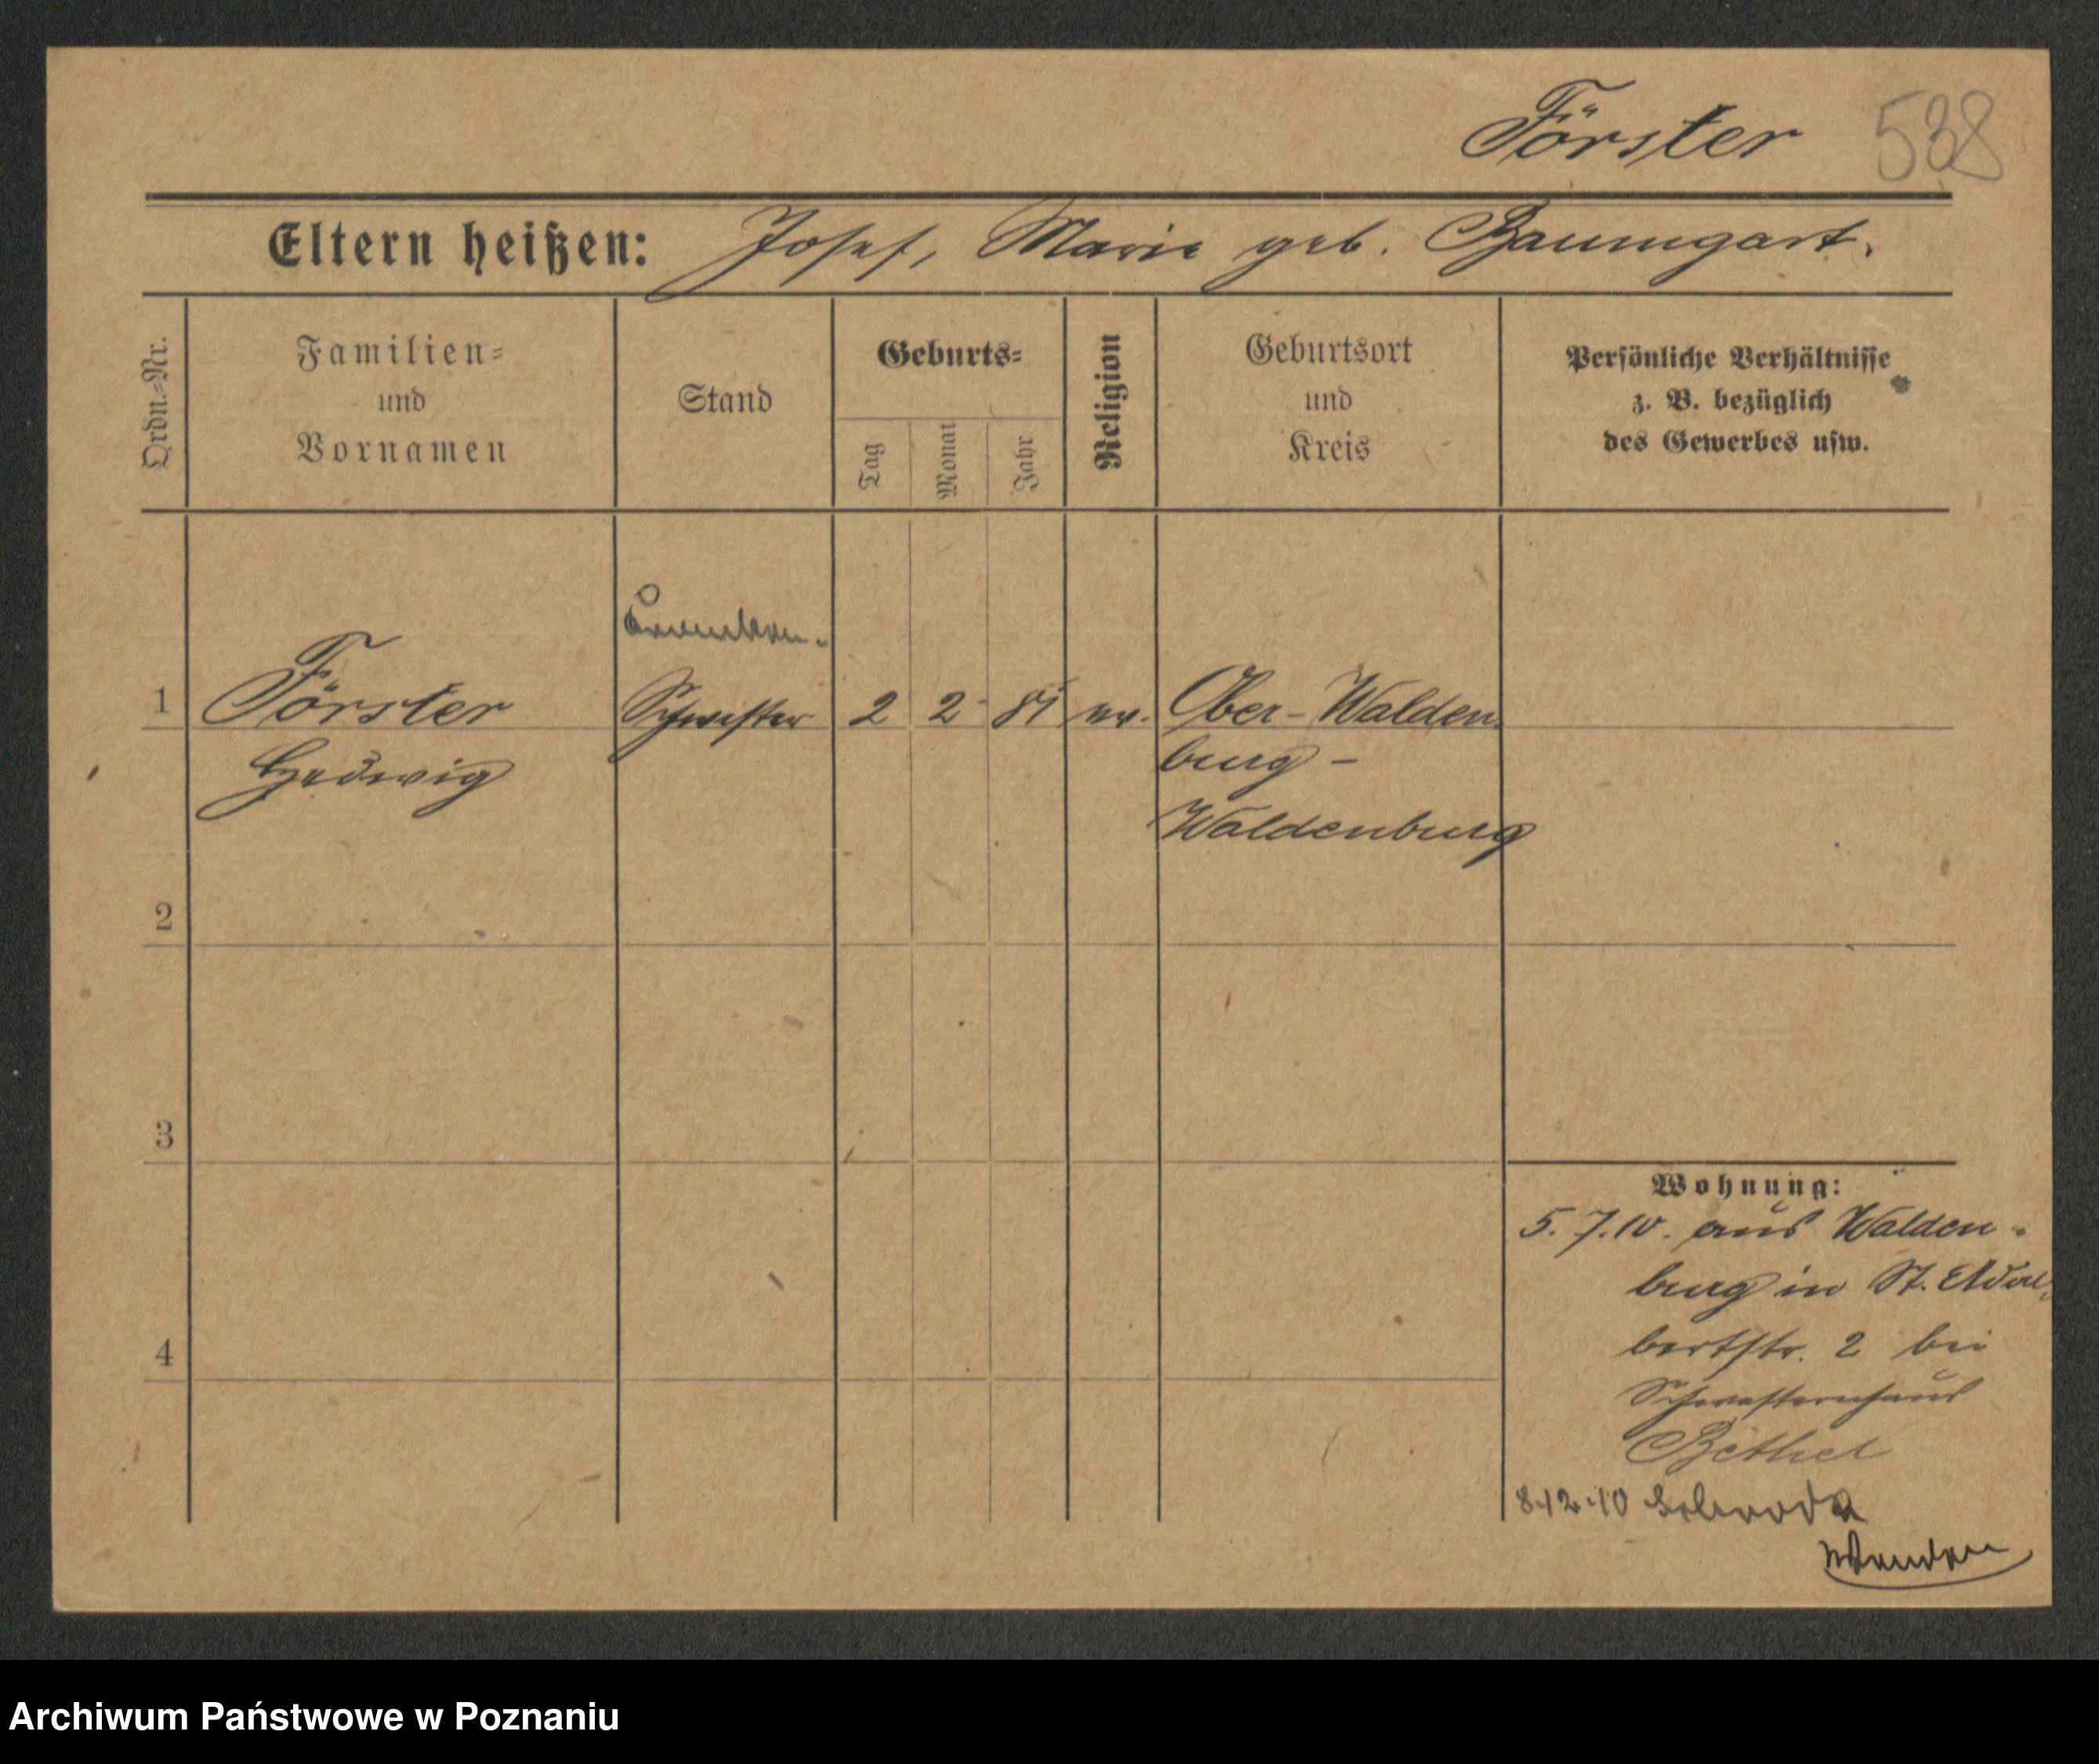 Förster 538
Eltern heißen: Josef, Marie geb. Baumgart.
Ordn.=Nr.
Familien=
und
Vornamen
Stand
Geburts=
Tag
Monat
Jahr
Religion
Geburtsort
und
Kreis
Persönliche Verhältnisse
z. B. bezüglich
des Gewerbes usw.
Kranken-
1 Förster Schwester 2 2 81 ev. Ober-Walden-
Hedwig burg -
Waldenburg
2
3
4
Wohnung:
5.7.10. aus Walden-
burg in St. Adal-
bertstr. 2 bei
Schwesternhaus
Bethel
8.12.10 Schroda
Archiwum Państwowe w Poznaniu